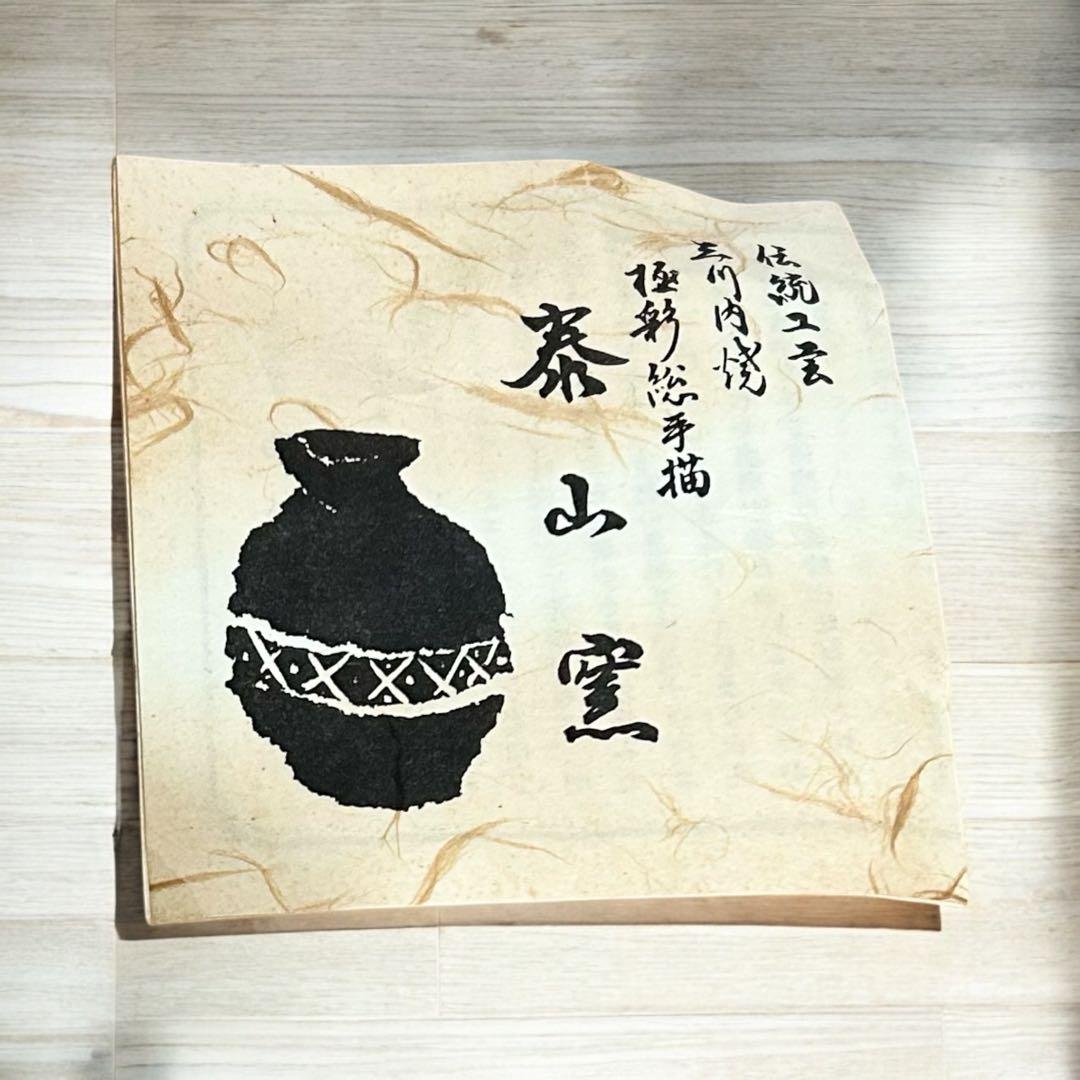 伝統工芸
三川内焼
極彩総手描
泰山窯